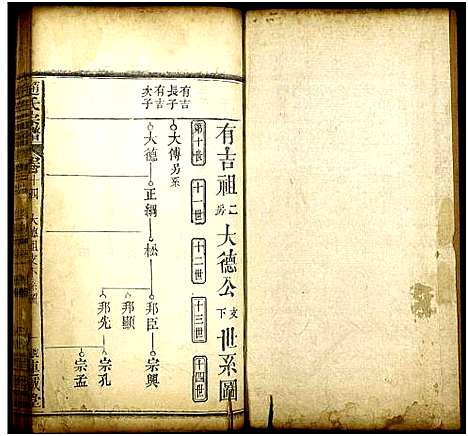 有吉祖二房大德公支下世系圖
第十世 十一世 十二世 十三世 十四世
有吉長子 大傅另系
有吉次子 大德 正綱 松 邦臣 宗興
邦顯
邦先 宗孔
宗孟
氏宗譜 卷十四 大德祖支下系圖